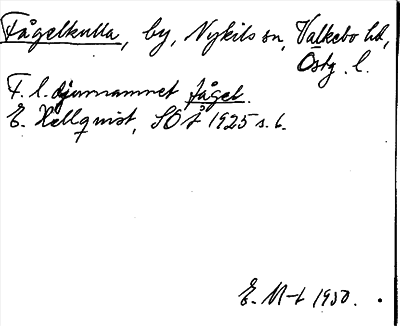 Fågelkulla, by, Nykils sn, Valkebo hd,
Östg. l.
F. l. djurnamnet fågel.
E. Hellquist, SOÅ 1925 s. 6.
E. M-t 1930.